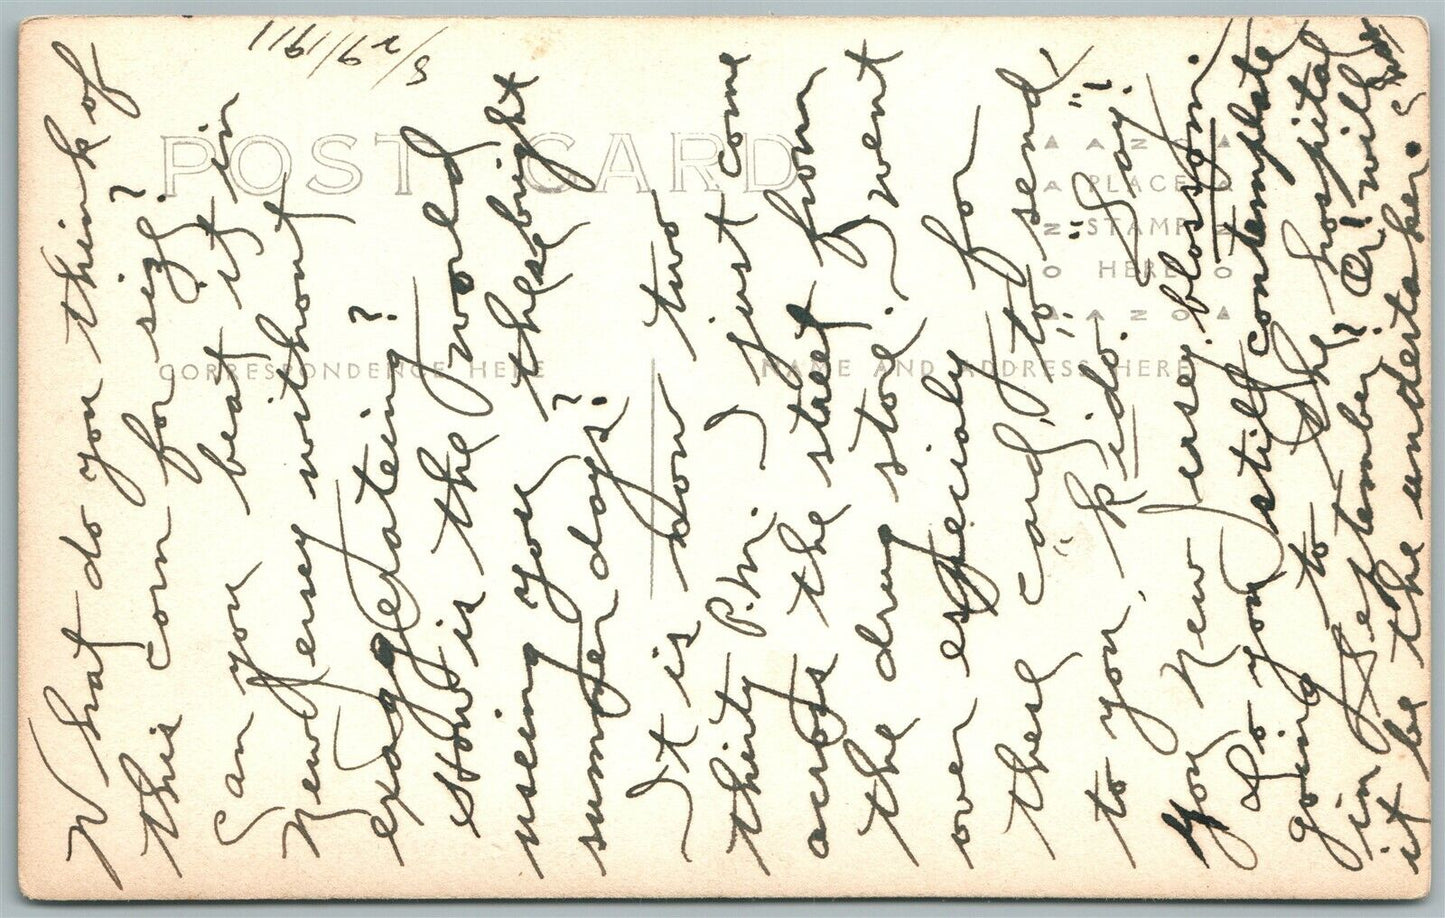 8/29/1911
What do you think of
this corn for size?
Can you beat it in
New Jersey without
exaggerateing?
How is the world
useing you these bright
summer days?
It is now two
thirty P.M. I just come
across the street from
the drug store. I went
over especialy for
these card to send
to you, kido. "Say!"
You New Jersey blossom.
Do you still contemplate
going to the hospital
in September? Or will
it be the undertaker.
POST CARD
CORRESPONDENCE HERE
NAME AND ADDRESS HERE
AZO
PLACE
STAMP
HERE
AZO